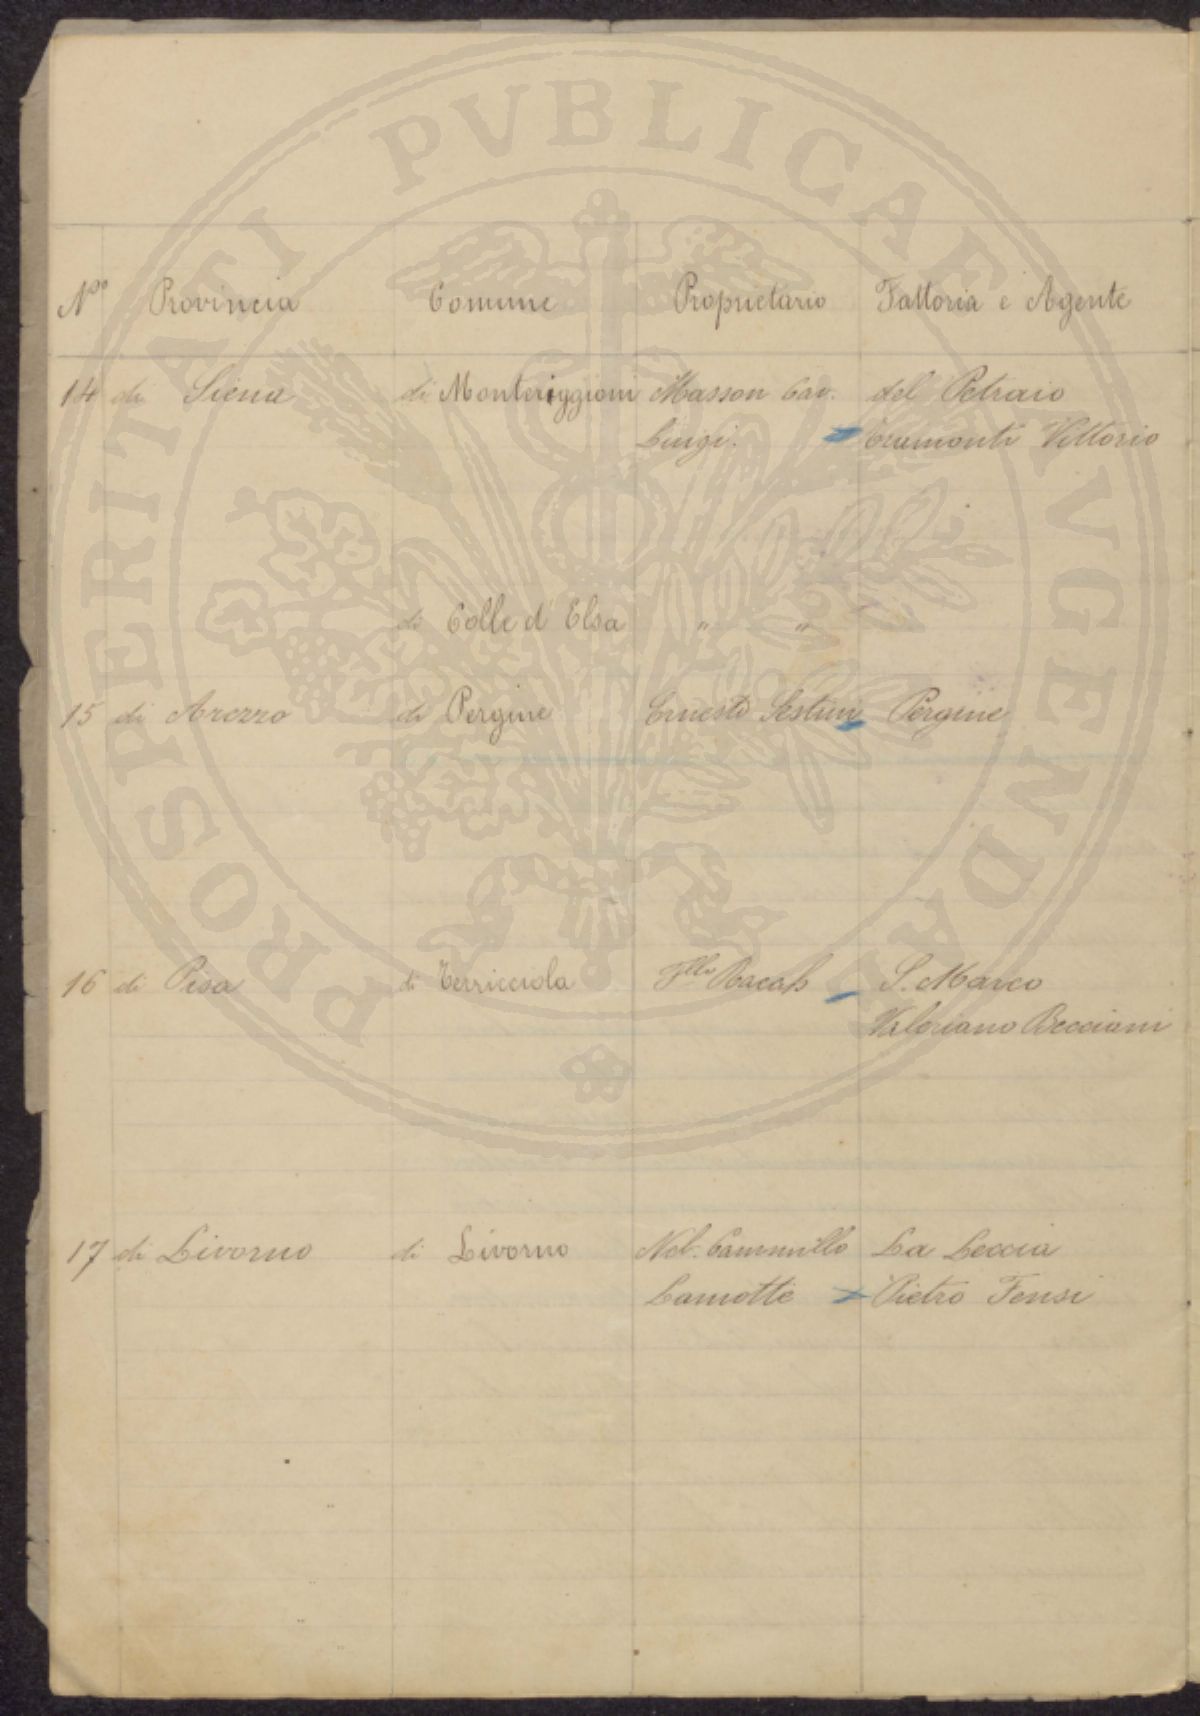 PROSPERITATI PVBLICAE AVGENDAE
Nº Provincia Comune Proprietario Fattoria e Agente
14 di Siena di Monteriggioni Masson Cav. del Petraio
Luigi. Tramonti Vittorio
di Colle d' Elsa " "
15 di Arezzo di Pergine Ernesto Sestini Pergine
16 di Pisa di Terricciola F.lli Bacah S. Marco
Valoriano Becciani
17 di Livorno di Livorno Nob. Cammillo La Leccia
Lamotte Pietro Fensi